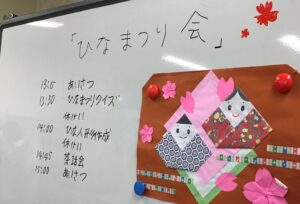 「ひなまつり会」
13:15 あいさつ
13:30 ひなまつりクイズ
休けい
14:00 ひな人形作成
休けい
14:45 茶話会
15:00 あいさつ